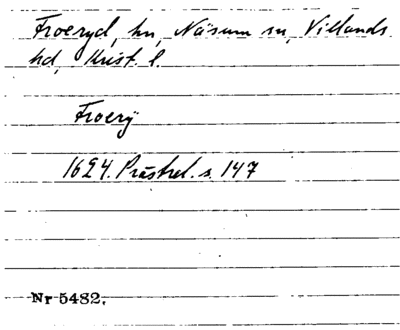 Froeryd, hn, Näsum sn, Villands
hd, Krist. l.
Froerÿ
1624. Prästrel. s. 147
Nr 5482.